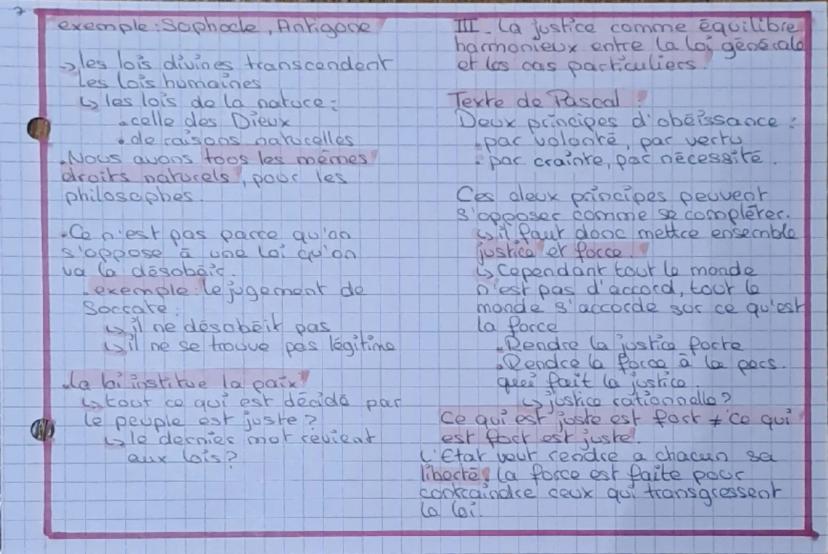 exemple: Sophocle, Antigone
↳ les lois divines transcendent
les lois humaines
↳ les lois de la nature:
• celle des Dieux
• de raisons naturelles
• Nous avons tous les mêmes
droits naturels, pour les
philosophes.
• Ce n'est pas parce qu'on
s'oppose à une loi qu'on
va la désobéir.
• exemple: le jugement de
Socrate.
↳ il ne désobéit pas
↳ il ne se trouve pas légitime
• la loi institue la paix
↳ tout ce qui est décidé par
le peuple est juste?
↳ le dernier mot revient
aux lois?
III - La justice comme équilibre
harmonieux entre la loi générale
et les cas particuliers.
Texte de Pascal:
Deux principes d'obéissance:
• par volonté, par vertu
• par crainte, par nécessité.
Ces deux principes peuvent
s'opposer comme se compléter.
↳ il faut donc mettre ensemble
justice et force.
↳ Cependant tout le monde
n'est pas d'accord, tout le
monde s'accorde sur ce qu'est
la force
• Rendre la justice forte
• Rendre la force à la pers.
qui fait la justice
↳ justice rationnelle?
Ce qui est juste est fort ≠ Ce qui
est fort est juste.
L'État veut rendre a chacun sa
liberté, la force est faite pour
contraindre ceux qui transgressent
la loi.